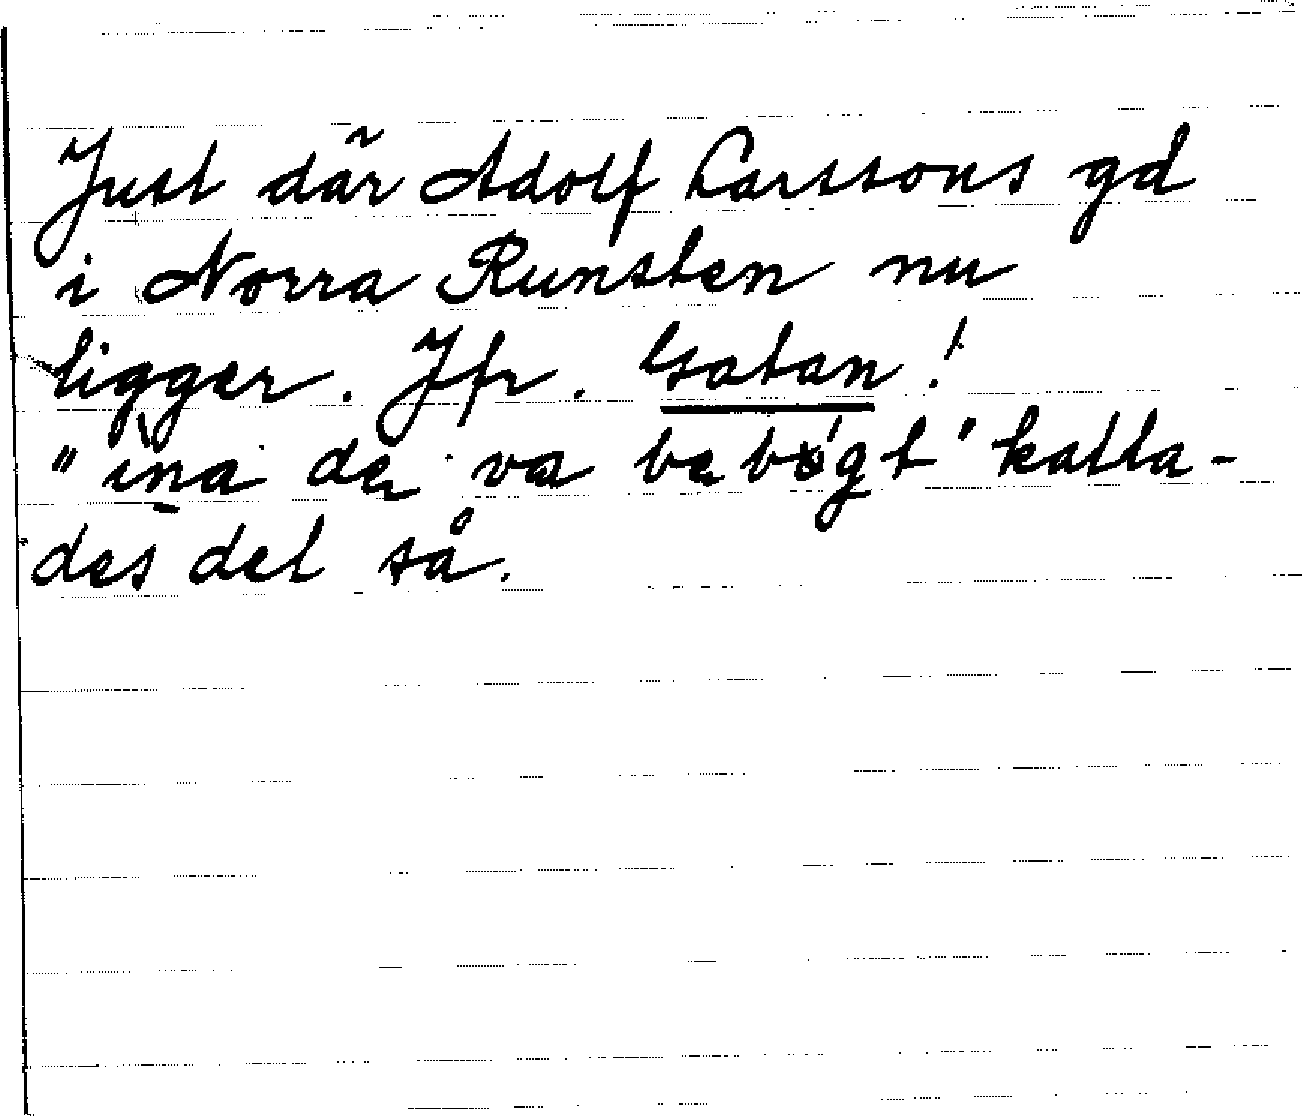 Just där Adolf Larssons gd
i Norra Runsten nu
ligger. Jfr. Gatan!
"ìna de va bebögt" kalla-
des det så.